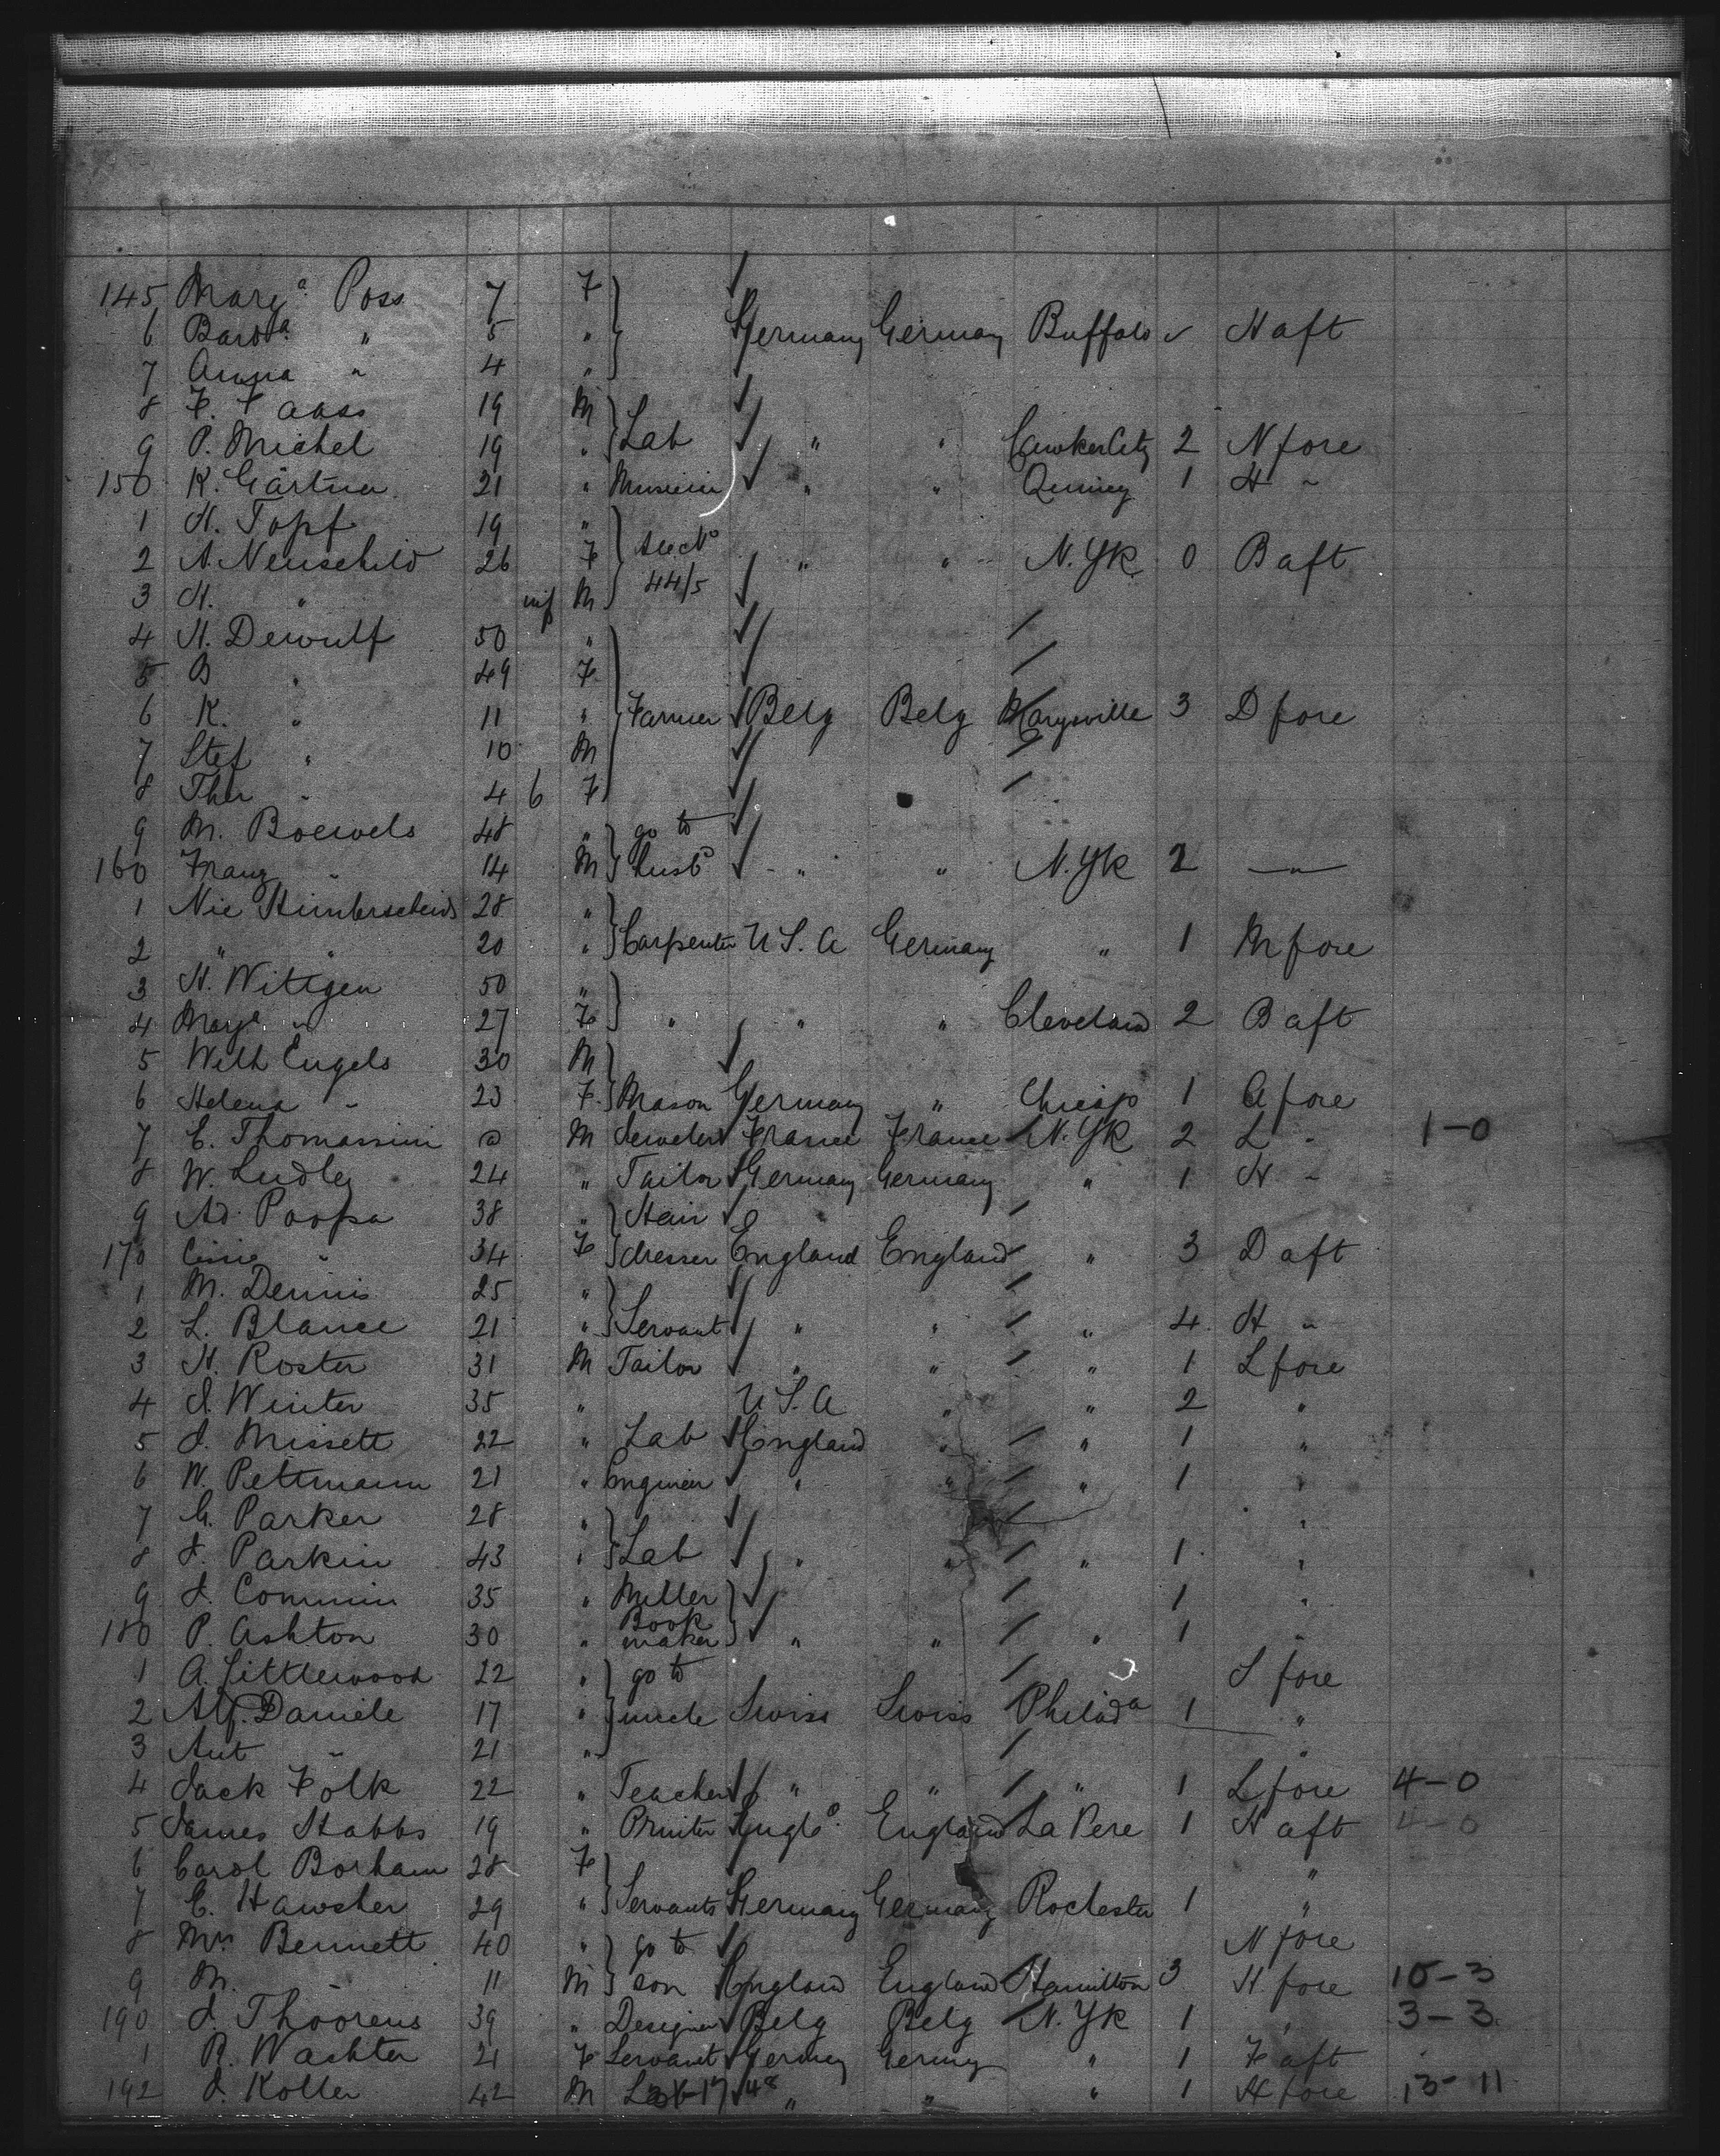 145 Marg.ª Poss 7 F
6 Barb.ª " 5 " Germany Germany Buffalo ✓ H aft
7 Anna " 4 "
8 F. Faass 19 M
9 P. Michel 19 " Lab " " Cawker City 2 N fore
150 K. Gärtner 21 " " " Quincy 1 H "
1 H. Topf 19 "
2 A. Neuschild 26 F " " N. Yk 0 B aft
3 H. " inf M 44/5
4 H. Dewulf 50 "
5 B " 49 F
6 K. " 11 " Farmer Belg Belg Marysville 3 D fore
7 Stef " 10 M
8 Ther " 4 6 F
9 M. Boewels 48 " go to
160 Franz " 14 M husbᵈ " " N. Yk 2 "
1 Nic Himberscheid 28 "
2 " " 20 " Carpenter U S. A Germany " 1 M fore
3 H. Wittgen 50 "
4 Marg.ª " 27 F " " " Cleveland 2 B aft
5 Wilh Engels 30 M
6 Helena " 23 F Mason Germany " Chicago 1 A fore
7 E. Thomassini M Jeweler France France N. Yk 2 L " 1-0
8 W. Ludley 24 " Tailor Germany Germany " 1 N "
9 Ad. Poopa 38 " Hair
170 " 34 F dresser England England " 3 D aft
1 M. Dennis 25 "
2 L. Blance 21 " Servant " " " 4 H "
3 H. Roster 31 M Tailor " " " 1 L fore
4 J. Winter 35 " U S. A " " 2 "
5 J. Missett 22 " Lab England " " 1 "
6 W. Pettmann 21 " Engineer " " " 1 "
7 G. Parker 28 " "
8 J. Parkin 43 " Lab " " " 1 "
9 J. Commin 35 " Miller 1 "
180 P. Ashton 30 " Book maker " " " 1 "
1 A. Littlewood 22 " go to S fore
2 Alf. Daniele 17 " uncle Swiss Swiss Philadª 1 "
3 Ant " 21 " "
4 Jack Folk 22 " Teacher " " " 1 L fore 4-0
5 James Stabbs 19 " Printer Englᵈ England La Pere 1 H aft 4-0
6 Carol Borham 28 F "
7 E. Hawsher 29 " Servants Germany Germany Rochester 1 "
8 Mrs Bennett 40 " go to N fore
9 M. " 11 M son England England Hamilton 3 H fore 10-3
190 J. Thoorens 39 " Designer Belg Belg N. Yk 1 " 3-3
1 R. Wachter 21 F Servant Germny Germny " 1 F aft
192 J. Koller 42 M " " " 1 H fore 13-11